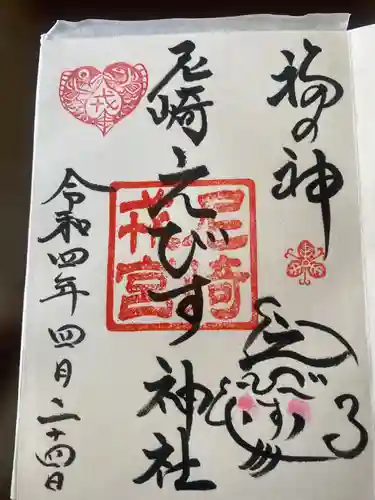 福の神
尼崎えびす神社
尼崎
戎宮
令和四年四月二十四日